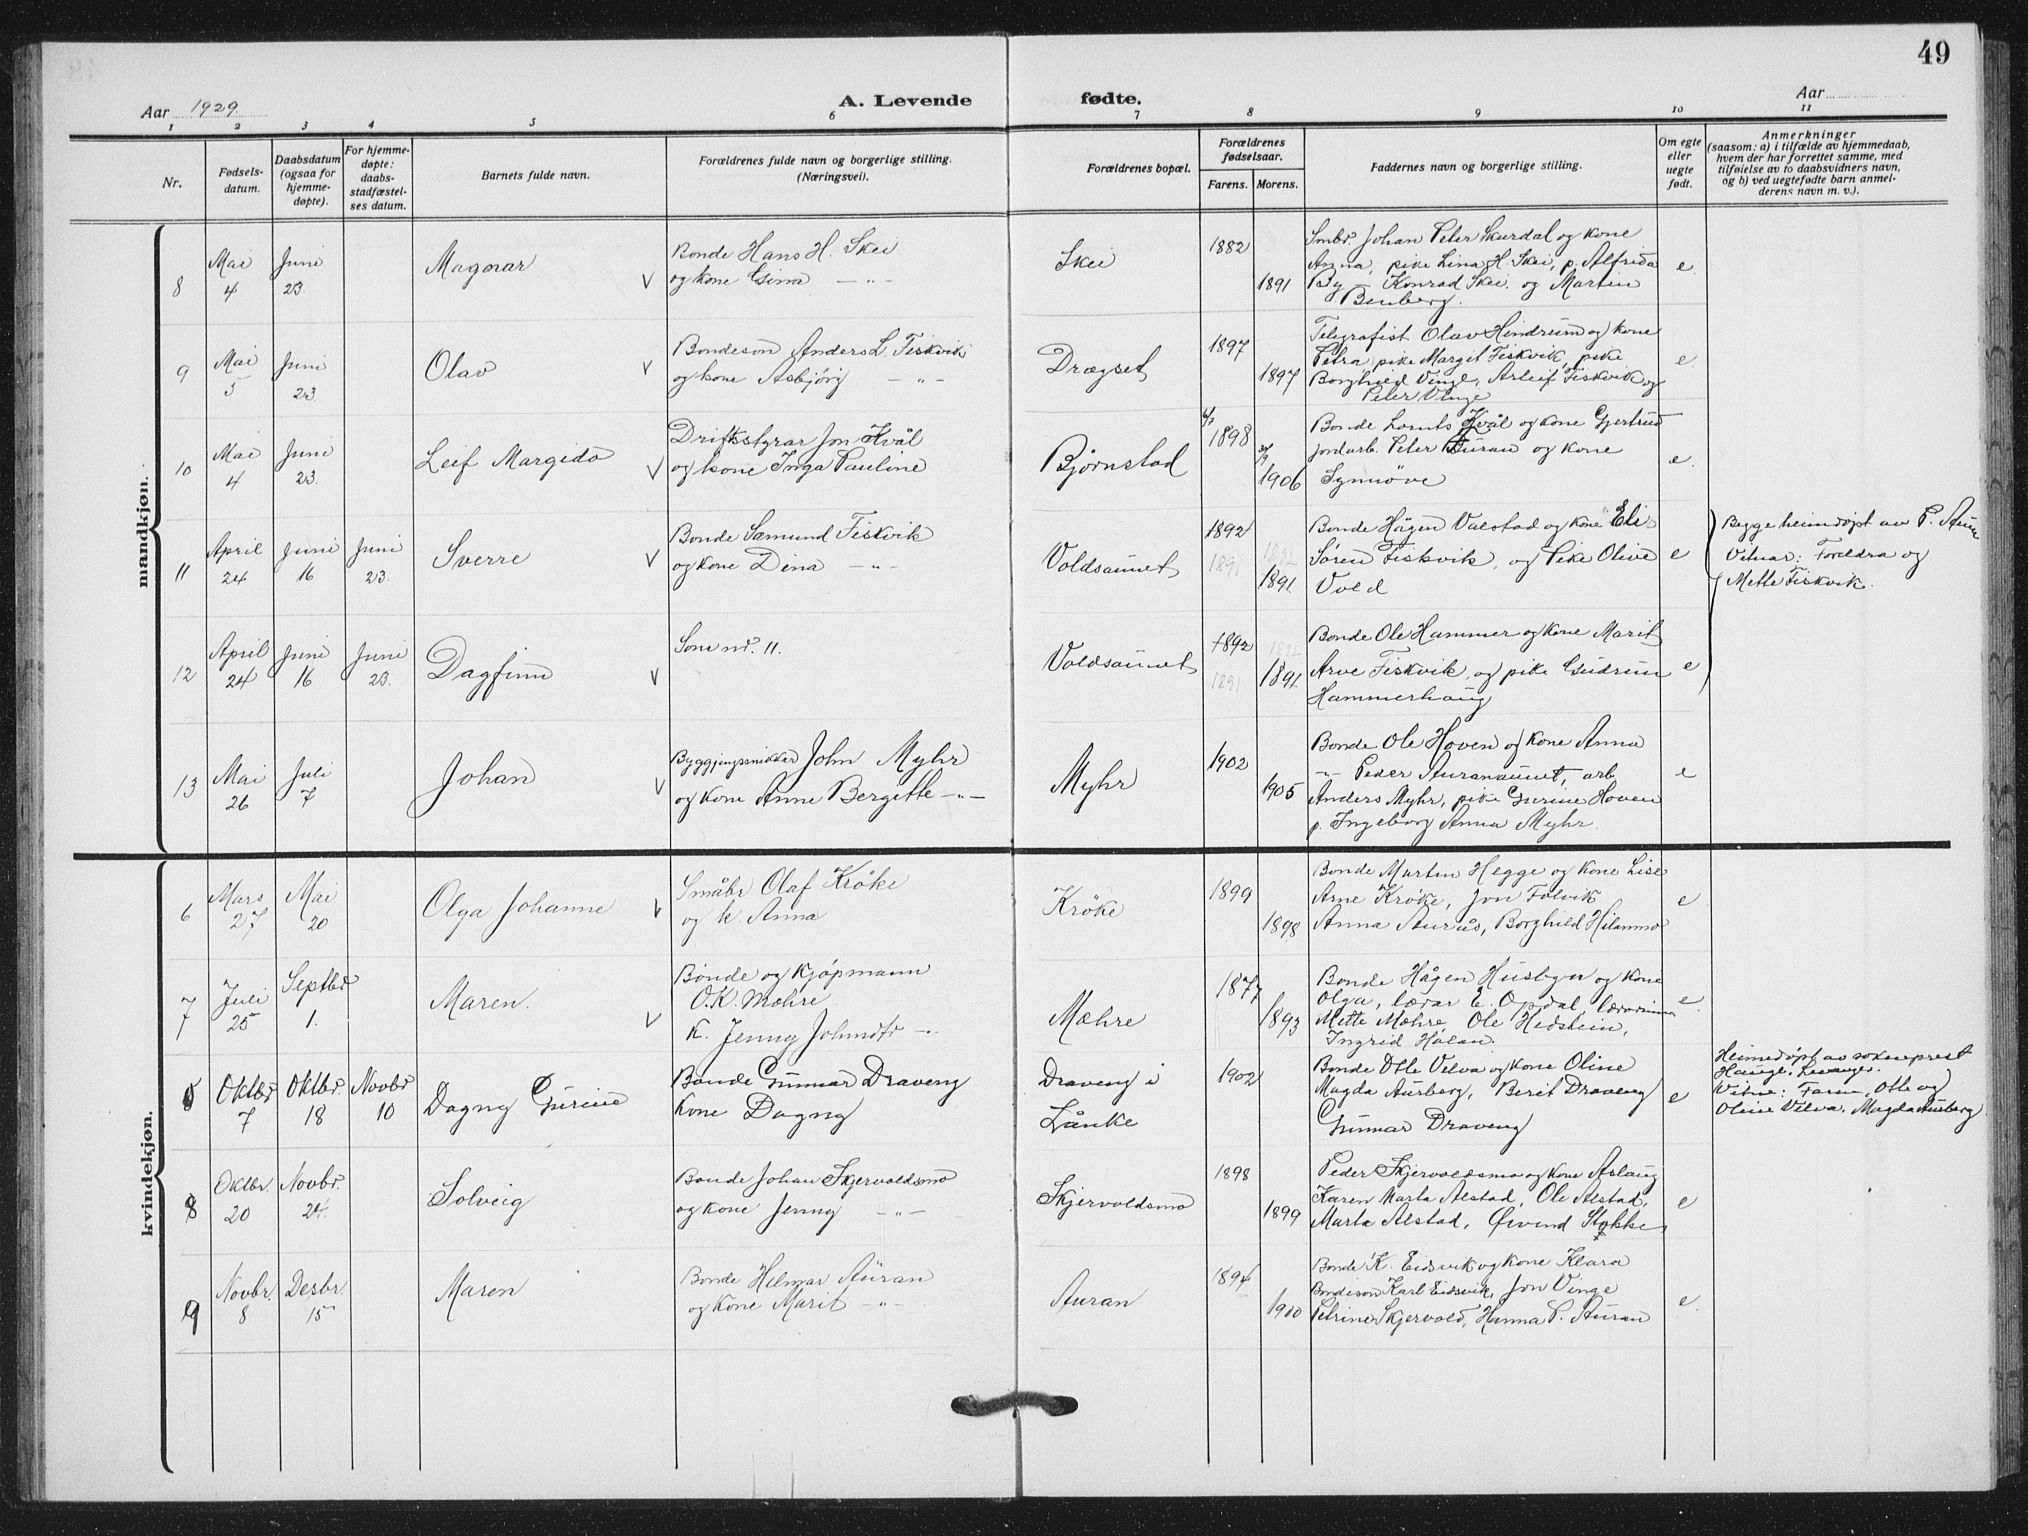 49
Aar 1929
A. Levende fødte.
Aar
1 2 3 4 5 6 7 8 9 10 11
Nr.
Fødsels-
datum.
Daabsdatum
(ogsaa for
hjemme-
døpte).
For hjemme-
døpte:
daabs-
stadfæstel-
ses datum.
Barnets fulde navn.
Forældrenes fulde navn og borgerlige stilling.
(Næringsvei).
Forældrenes bopæl.
Forældrenes
fødselsaar.
Farens. Morens.
Faddernes navn og borgerlige stilling.
Om egte
eller
uegte
født.
Anmerkninger
(saasom: a) i tilfælde av hjemmedaab,
hvem der har forrettet samme, med
tilføielse av to daabsvidners navn,
og b) ved uegtefødte barn anmel-
derens navn m. v.).
mandkjøn.
8 Mai 4 Juni 23. Magnar
Bonde Hans H. Skei
og kone Gina — " —
Skei 1882 1891
Smbr. Johan Peter Skurdal og kone
Anna, pike Lina H. Skei, p. Alfrida
By — Konrad Skei. og Martin
Benberg.
e.
9 Mai 5 Juni 23 Olav
Bondesøn Anders L. Fiskvik
og kone Asbjørg — " —
Drægset 1897 1897
Telegrafist Olav Hindrum og kone
Petra, pike Margit Fiskvik, pike
Borghild Vinge, Arleif Fiskvik og
Peter Vinge
e
10 Mai 4 Juni 23. Leif Margido
Driftsstyrar Jon Kvål
og kone Inga Pauline
Bjørnstad 1898 1906
Bonde Lornts Kvål og kone Gjertrud
jordarb. Peter Auran og kone
Synnøve
e.
11 April 24 Juni 16 Juni 23. Sverre
Bonde Sæmund Fiskvik
og kone Dina — " —
Voldsaunet 1892 1891
Bonde Hågen Valstad og kone Eli
Søren Fiskvik, og Pike Olive
Vold
e
Begge heimdøpt av P. Aune
Vitnar: Foreldra og
Mette Fiskvik.
12 April 24 Juni 16 Juni 23. Dagfinn
Som nr. 11.
Voldsaunet 1892 1891
Bonde Ole Hammer og kone Marit
Arve Fiskvik, og pike Gudrun
Hammerhaug
e
13 Mai 26 Juli 7 Johan
Byggjingssnikkar John Myhr
og kone Anne Bergitte — " —
Myhr 1902 1905
Bonde Ole Hoven og kone Anna
— " — Peder Auranaunet, arb.
Anders Myhr, pike Gurine Hoven
p. Ingeborg Anna Myhr.
e
kvindekjøn.
6 Mars 27 Mai 20 Olga Johanne
Småbr Olaf Krøke
og k. Anna
Krøke 1899 1898
Bonde Martin Hegge og kone Lise
Arne Krøke, Jon Folvik
Anna Aurås, Borghild Hilammo
e
7 Juli 25 Septbr 1. Maren.
Bonde og Kjøpmann
O.K. Mæhre
K. Jenny Johndtr — " —
Mæhre 1877 1893
Bonde Hågen Husbyn og kone
Olga, lærar E. Opdal, lærarinna
Mette Mæhre, Ole Hedstein,
Ingrid Holan.
e.
Oktbr 7 Oktbr. 18 Novbr 10 Dagny Gurine
Bonde Gunnar Draveng
Kone Dagny
Draveng i
Lånke
1902
Bonde Otte Velva og kone Oline
Magda Aurberg, Berit Draveng
Gunnar Draveng
e
Heimedøpt av sokneprest
Hauge, Levanger.
Vitne: Faren, Otte og
Oline Velva. Magda Aurberg
8 Oktbr. 20 Novbr. 24 Solveig
Bonde Johan Skjervoldsmo
og kone Jenny — " —
Skjervoldsmo 1898 1899
Peder Skjervoldsmo og kone Aslaug
Karen Marta Alstad, Ole Alstad,
Marta Alstad, Øivind Stokke
e
9 Novbr. 8 Desbr. 15 Maren
Bonde Helmar Auran
og kone Marit — " —
Auran 1894 1900
Bonde K. Eidsvik og kone Klara
Bondeson Karl Eidsvik, Jon Vinge
Petrine Skjervold, Hanna P. Auran
e.